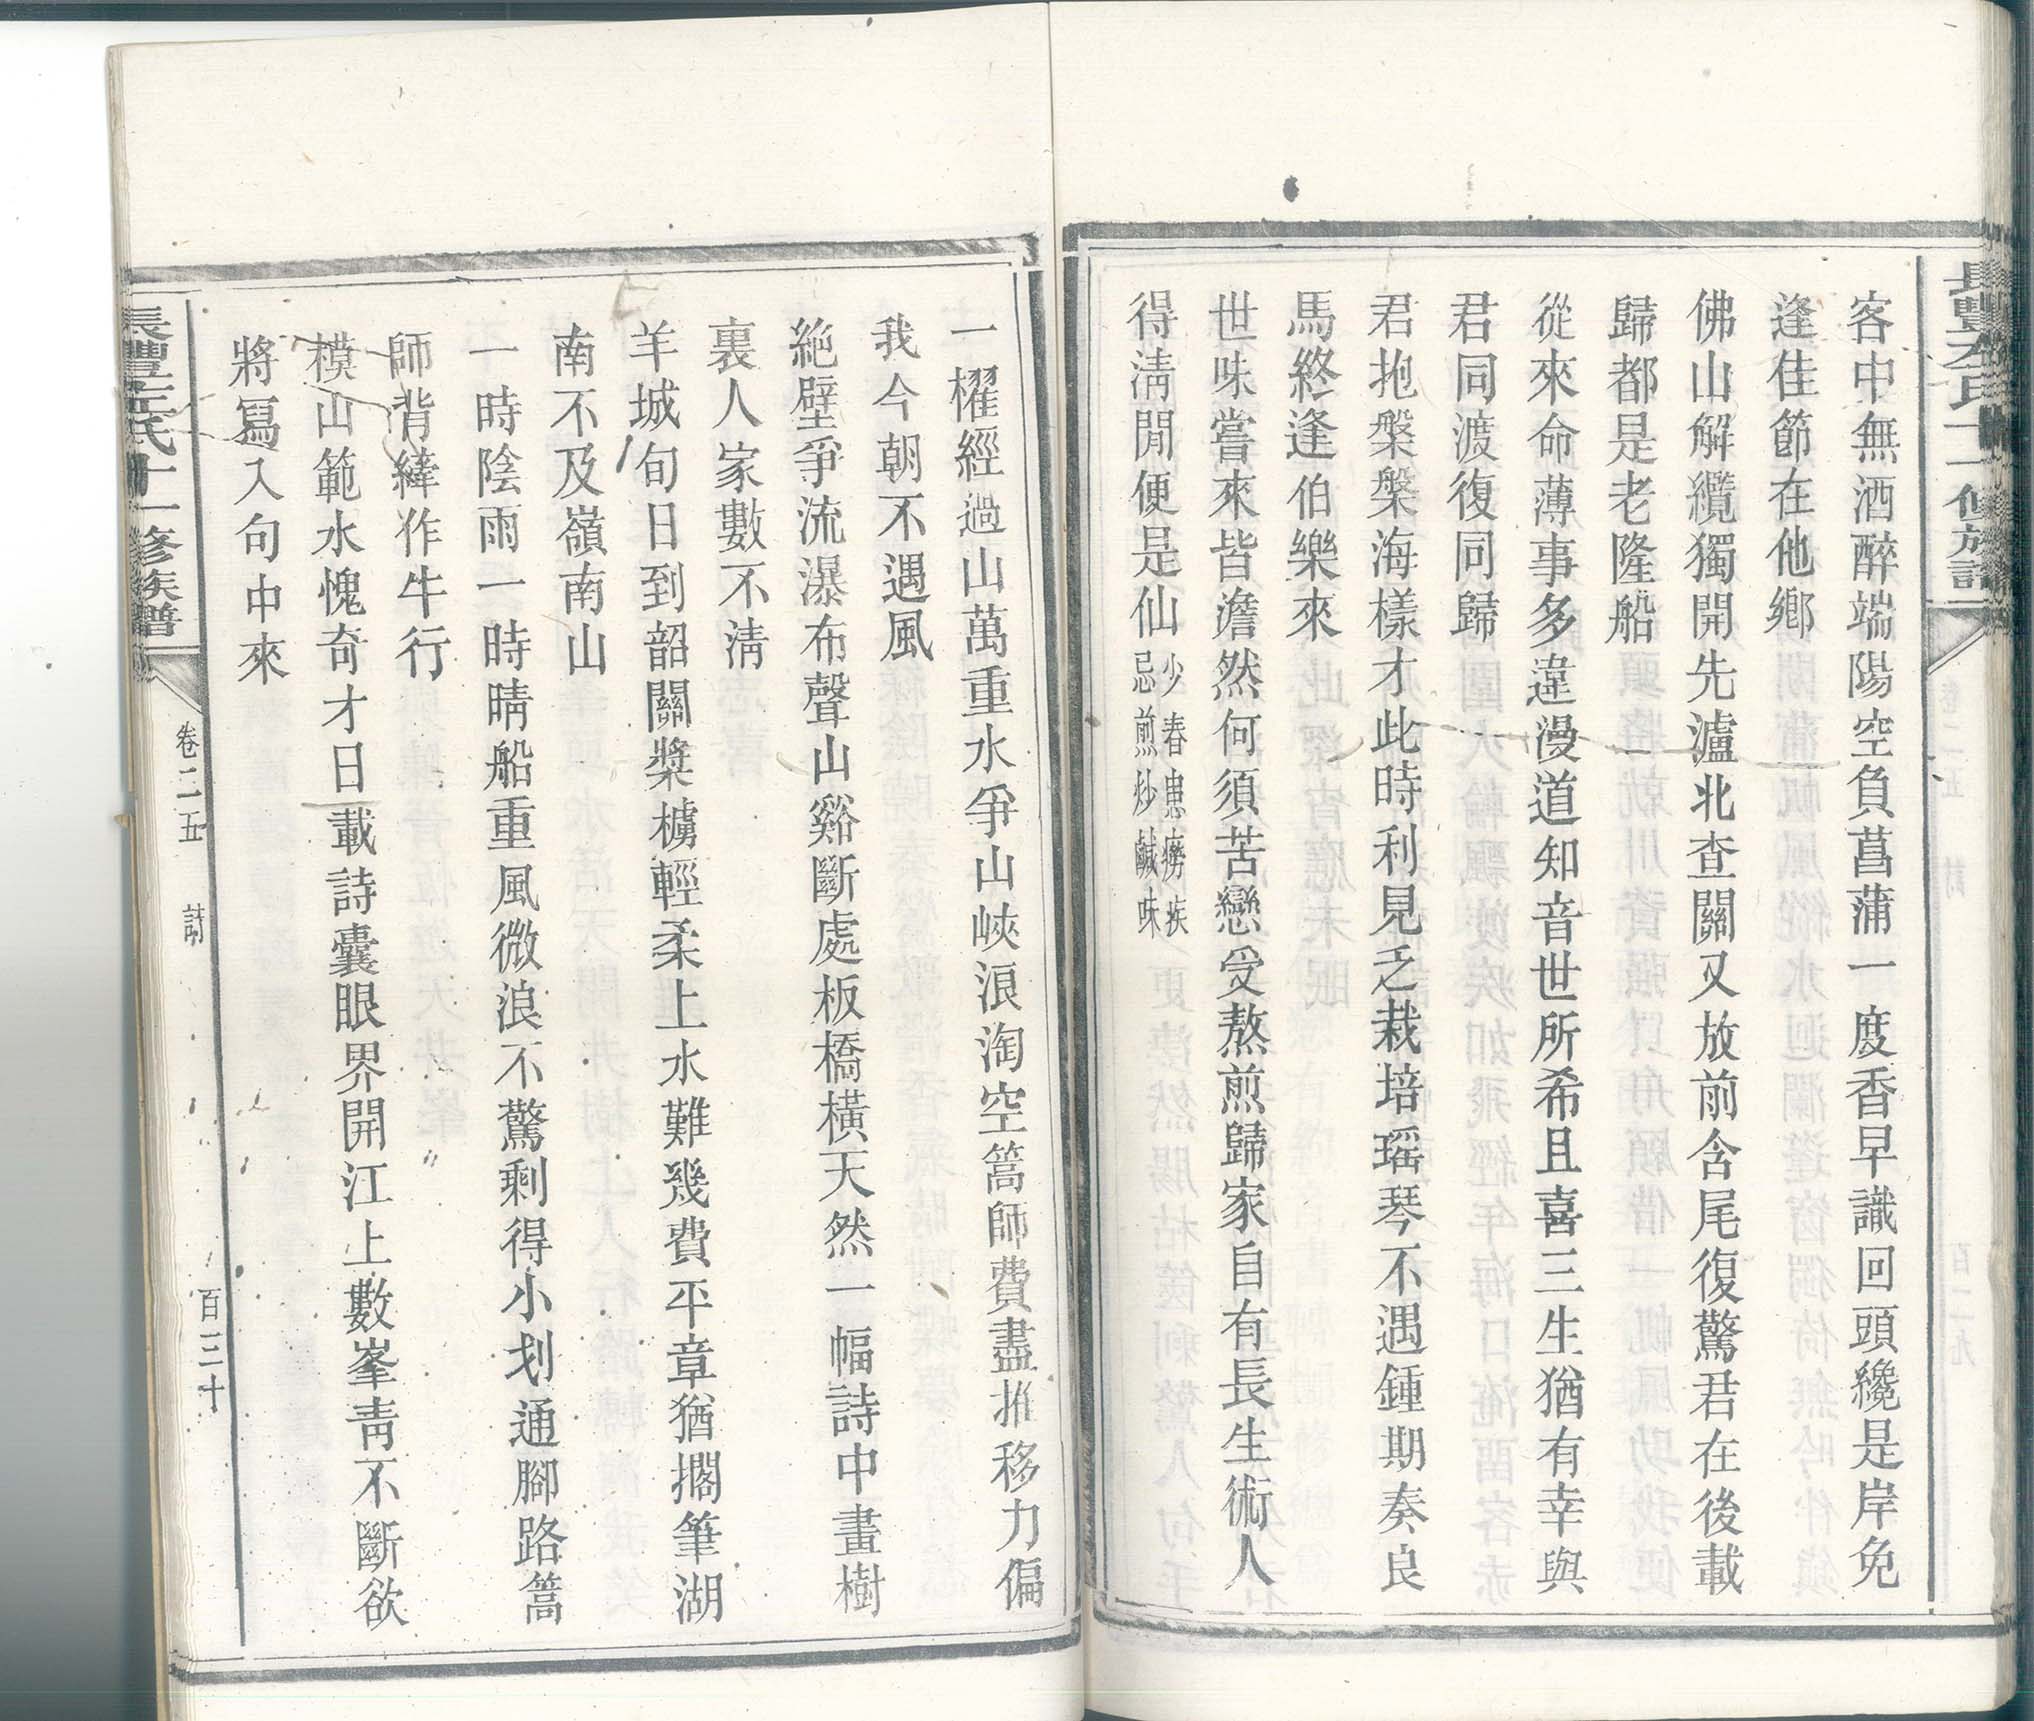 客中無酒醉端陽空負菖蒲一度香早識回頭纔是岸免
逢佳節在他鄉
佛山解纜獨開先瀘北查關又放前含尾復驚君在後載
歸都是老隆船
從來命薄事多違漫道知音世所希且喜三生猶有幸與
君同渡復同歸
君抱槃槃海樣才此時利見乏栽培瑶琴不遇鍾期奏良
馬終逢伯樂來
世味嘗來皆澹然何須苦戀受熬煎歸家自有長生術人
得淸閒便是仙
少春患癆疾
忌煎炒鹹味
一櫂經過山萬重水爭山峽浪淘空篙師費盡推移力偏
我今朝不遇風
絕壁爭流瀑布聲山谿斷處板橋橫天然一幅詩中畫樹
裏人家數不淸
羊城旬日到韶關槳櫓輕柔上水難幾費平章猶擱筆湖
南不及嶺南山
一時陰雨一時晴船重風微浪不驚剩得小划通腳路篙
師背縴作牛行
模山範水愧奇才日載詩囊眼界開江上數峯靑不斷欲
將寫入句中來
長豐左氏十一修族譜
卷二五
詩
百三十